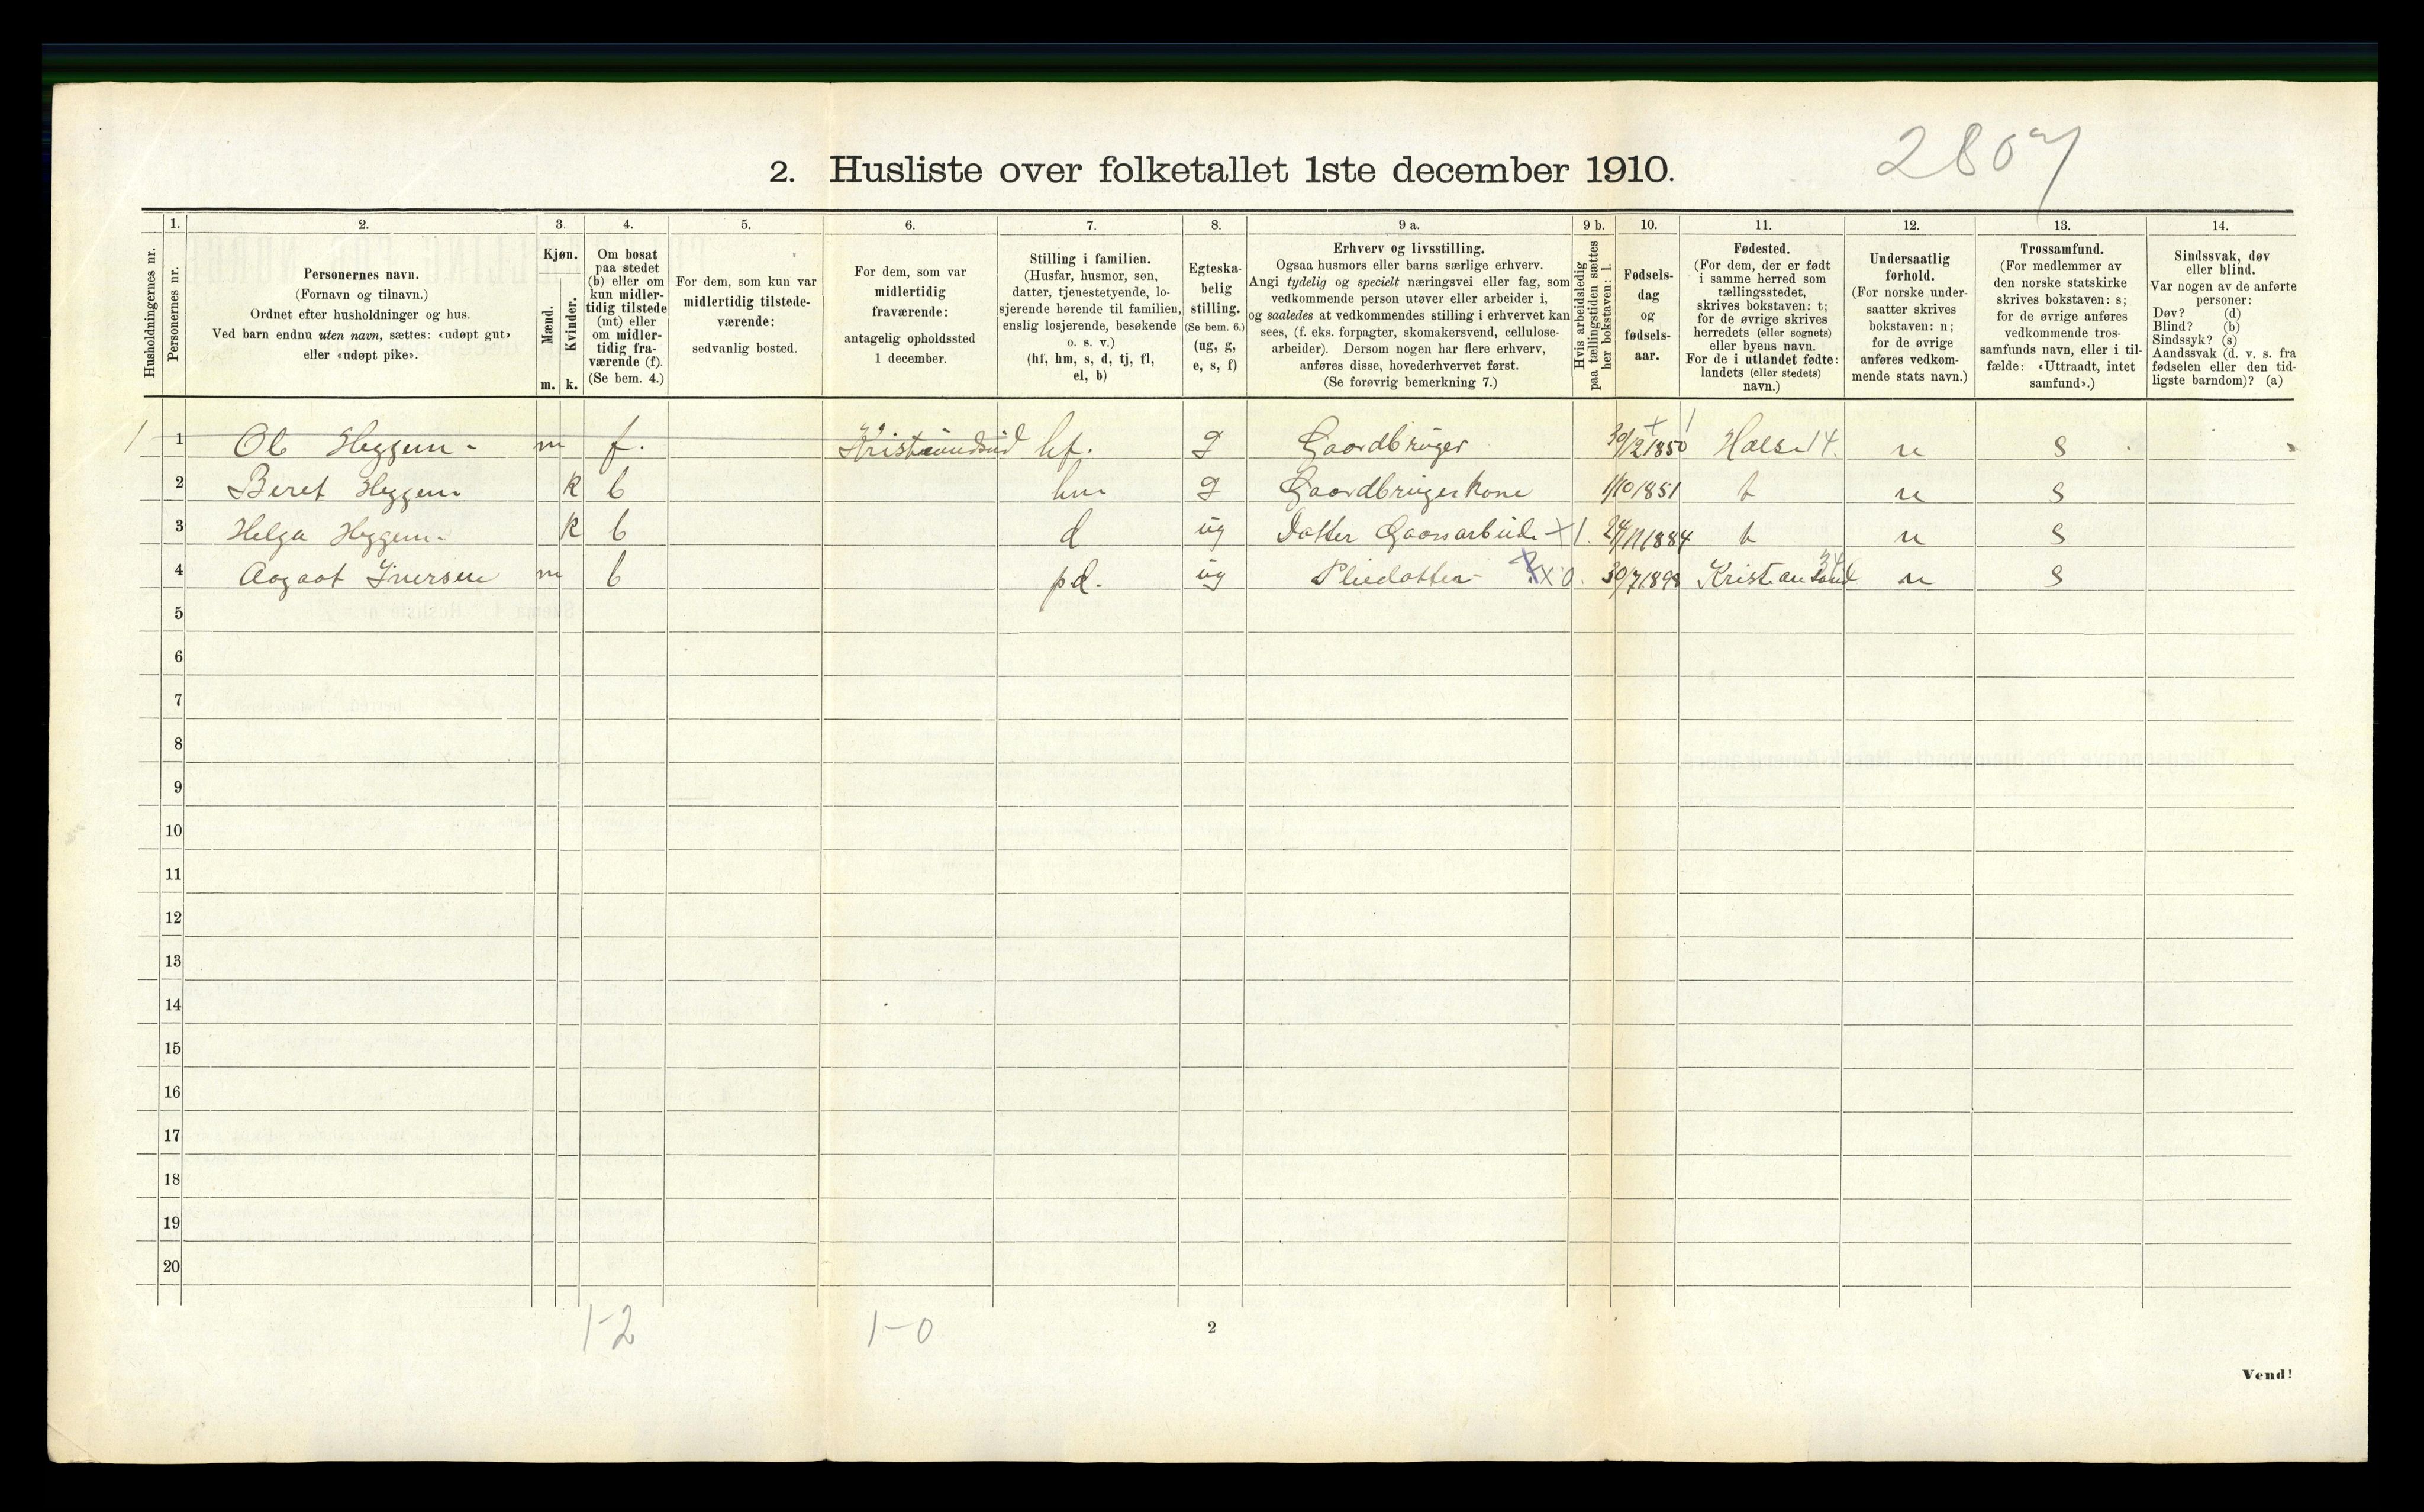 2807
2. Husliste over folketallet 1ste december 1910.
1. 2. 3. 4. 5. 6. 7. 8. 9 a. 9 b. 10. 11. 12. 13. 14.
Husholdningernes nr.
Personernes nr.
Personernes navn.
(Fornavn og tilnavn.)
Ordnet efter husholdninger og hus.
Ved barn endnu uten navn, sættes: «udøpt gut»
eller «udøpt pike».
Kjøn.
Mænd.
Kvinder.
m. k.
Om bosat
paa stedet
(b) eller om
kun midler-
tidig tilstede
(mt) eller
om midler-
tidig fra-
værende (f).
(Se bem. 4.)
For dem, som kun var
midlertidig tilstede-
værende:
sedvanlig bosted.
For dem, som var
midlertidig
fraværende:
antagelig opholdssted
1 december.
Stilling i familien.
(Husfar, husmor, søn,
datter, tjenestetyende, lo-
sjerende hørende til familien,
enslig losjerende, besøkende
o. s. v.)
(hf, hm, s, d, tj, fl,
el, b)
Egteska-
belig
stilling.
(Se bem. 6.)
(ug, g,
e, s, f)
Erhverv og livsstilling.
Ogsaa husmors eller barns særlige erhverv.
Angi tydelig og specielt næringsvei eller fag, som
vedkommende person utøver eller arbeider i,
og saaledes at vedkommendes stilling i erhvervet kan
sees, (f. eks. forpagter, skomakersvend, cellulose-
arbeider). Dersom nogen har flere erhverv,
anføres disse, hovederhvervet først.
(Se forøvrig bemerkning 7.)
Hvis arbeidsledig
paa tællingstiden sættes
her bokstaven: l.
Fødsels-
dag
og
fødsels-
aar.
Fødested.
(For dem, der er født
i samme herred som
tællingsstedet,
skrives bokstaven: t;
for de øvrige skrives
herredets (eller sognets)
eller byens navn.
For de i utlandet fødte:
landets (eller stedets)
navn.)
Undersaatlig
forhold.
(For norske under-
saatter skrives
bokstaven: n;
for de øvrige
anføres vedkom-
mende stats navn.)
Trossamfund.
(For medlemmer av
den norske statskirke
skrives bokstaven: s;
for de øvrige anføres
vedkommende tros-
samfunds navn, eller i til-
fælde: «Uttraadt, intet
samfund».)
Sindssvak, døv
eller blind.
Var nogen av de anførte
personer:
Døv? (d)
Blind? (b)
Sindssyk? (s)
Aandssvak (d. v. s. fra
fødselen eller den tid-
ligste barndom)? (a)
1 1 Ole Heggem m f. Kristiansund hf. g Gaardbruger 30/2 1850 Halsa 14. n s
2 Beret Heggem k b hm g Gaardbrugerkone 1/10 1851 t n s
3 Helga Heggem k b d ug Datter Gaarsarbeide X 1. 24/11 1884 t n s
4 Aagaat Iversen m b pd. ug Pliedatter XX 0. 30/7 1898 Kristiansund 34 n s
5
6
7
8
9
10
11
12
13
14
15
16
17
18
19
20
1-2 1-0
2
Vend!